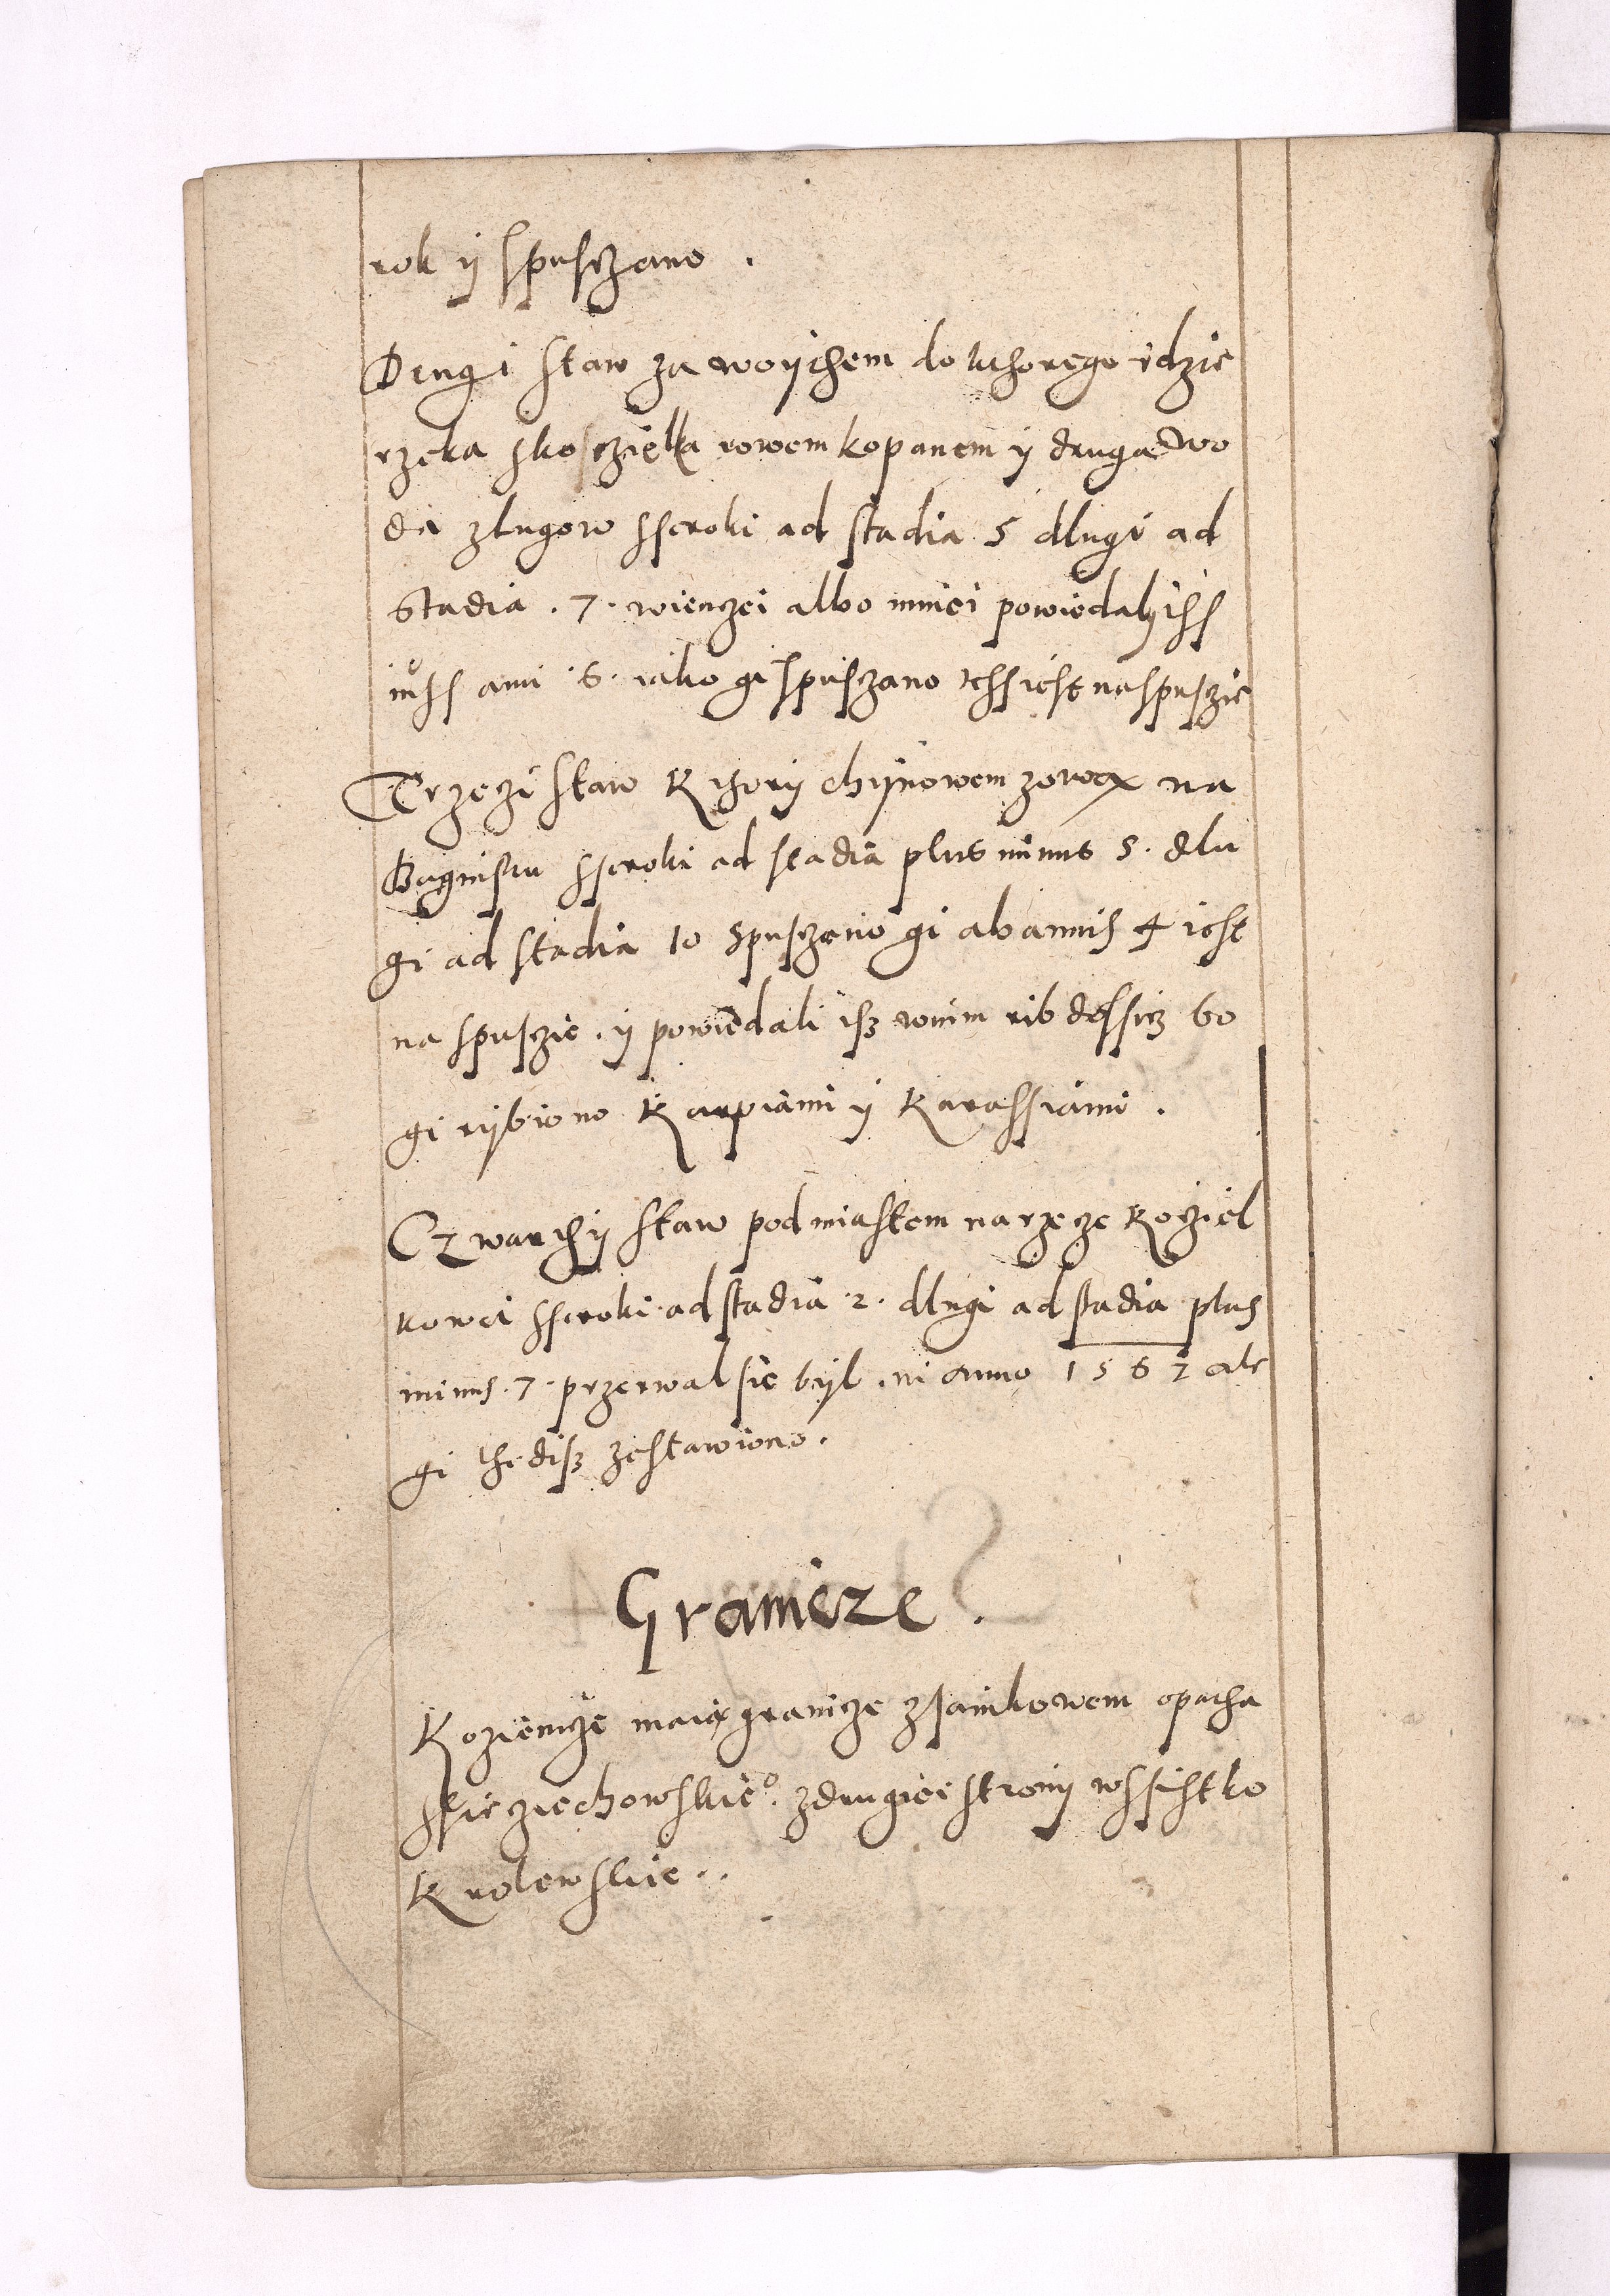 rok ÿ spusczano.
Drugi staw za woÿthem do kthorego idzie
rzeka skosczielka rowem kopanem ÿ druga wo
da zlugow sseroki ad stadia 5 dlugi ad
Stadia. 7. wienczei albo mniei powiedaly iss
iuss anni 6. iako gi spusczano tess iest na spusczie
Trzeczi staw Kthorÿ chÿnowem zową na
Bagnisku sseroki ad stadia plus minus 5. dlu
gi ad stadia 10 spusczano gi ab annis 4 iest
na spusczie. ÿ powiedali isz wnim rib dossicz bo
gi rÿbiono Karpiami ÿ Karassiami.
Czwarthÿ staw pod miastem na rzecze Koziel
kowei sseroki ad stadia 2. dlugi ad stadia plus
minus. 7. przerwal sie bÿl. in anno 1562 ale
gi thedisz zestawiono.
Granicze.
Kozienicze maią granicze z Janikowem opatha
Ssieciechowskieo. zdrugiei stronÿ wssistko
Krolewskie..